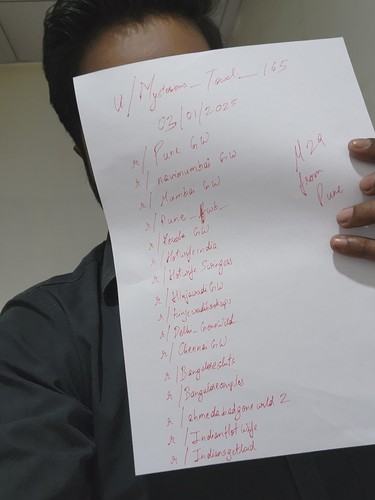 u/Mysterious_Towel_165
03/01/2025
r/ Pune GW
r/ navimumbai GW
r/ Mumbai GW
r/ Pune_
r/ Kerala GW
r/ Hotwifeindia
r/ Hotwife Swingers
r/ Hinjawadi GW
r/
r/ Delhi_Gonewild
r/ Chennai GW
r/ Bangaloresluts
r/ Bangalorecouples
r/ ahmedabadgonewild 2
r/ IndianHotwife
r/ Indiansgetlaid
M 29
from
Pune